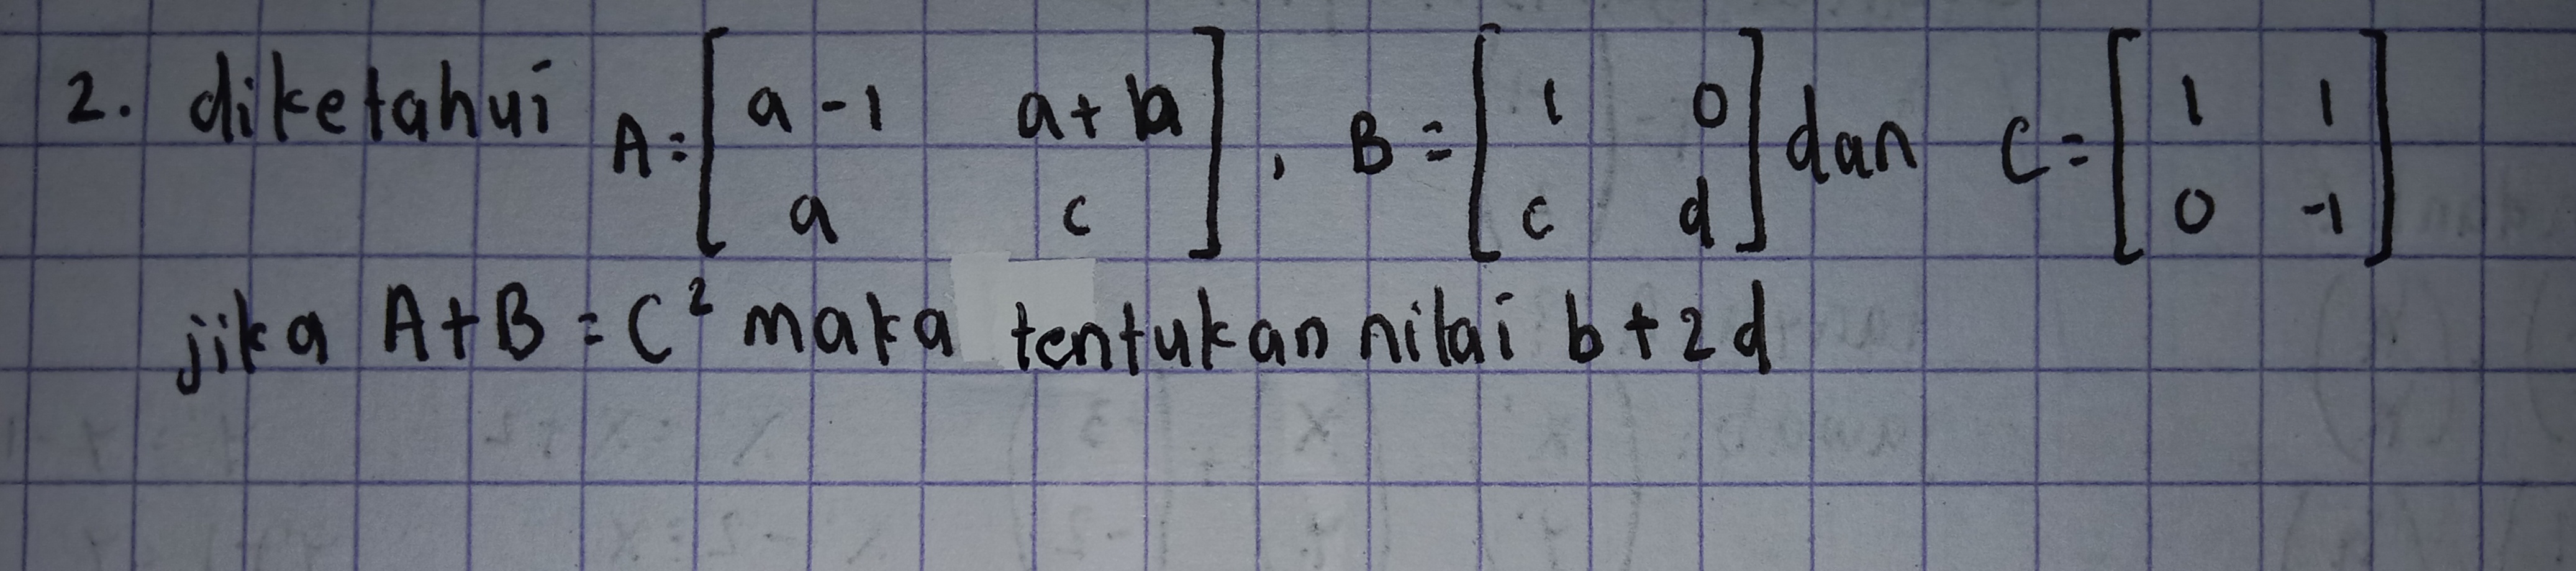 2. diketahui A = [a - 1 a + b a c], B = [1 0 c d] dan C = [1 1 0 -1]
jika A + B = C² maka tentukan nilai b + 2d